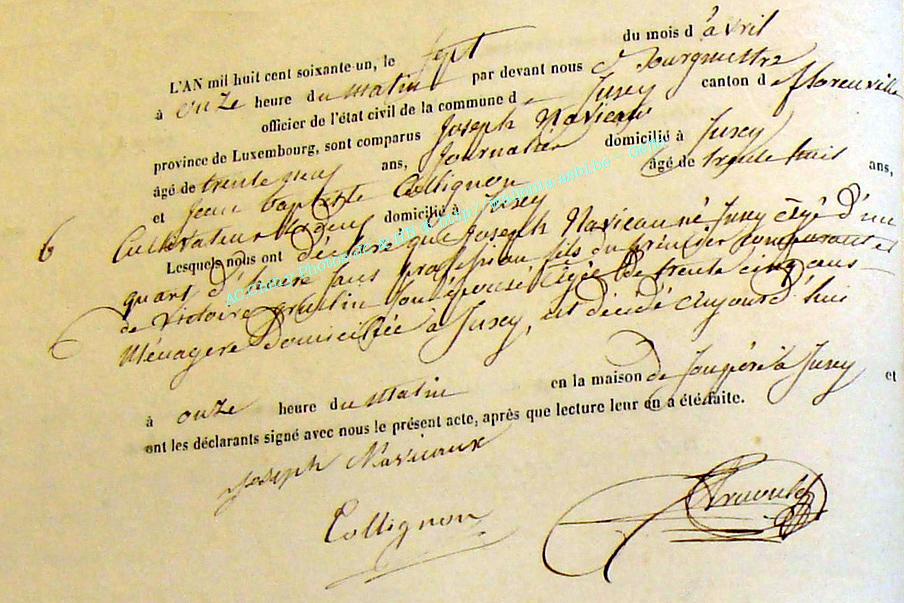 L'AN mil huit cent soixante-un, le sept du mois d'avril
à onze heure du matin par devant nous Bourgmestre
officier de l'état civil de la commune d Jusey canton d florenville
province de Luxembourg, sont comparus Joseph Navieaux
âgé de trente neuf ans, Journalier domicilié à Jusey
et Jean baptiste Collignon âgé de trente huit ans,
Cultivateur domicilié à Jusey
6
Lesquels nous ont déclaré que Joseph Navieau né Jusey âgé d'un
quart d'heure sans profession fils du premier comparant et
de Victoire son épouse âgée de trente cinq ans
Ménagere domiciliée à Jusey, est décédé aujourd'hui
à onze heure du matin en la maison de son père à Jusey et
ont les déclarants signé avec nous le présent acte, après que lecture leur en a été faite.
Joseph Navieaux
Collignon